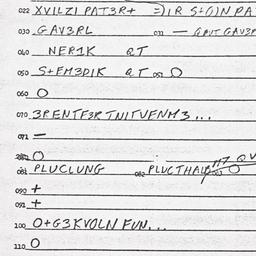 022 XVILZI PAT3R+ =)IR S+GINPA
030 GAV3RL 031 — GAUT GAV3R
040 NER1K QT
050 S+FM3DIK QT 059 O
060 O
070 3RENTF3R TNITVFNM3...
071 —
O
081 PLUCLUNG 082 PLUCTHALB O
090 +
091 +
100 O+G3KVOLN FUN...
110 O